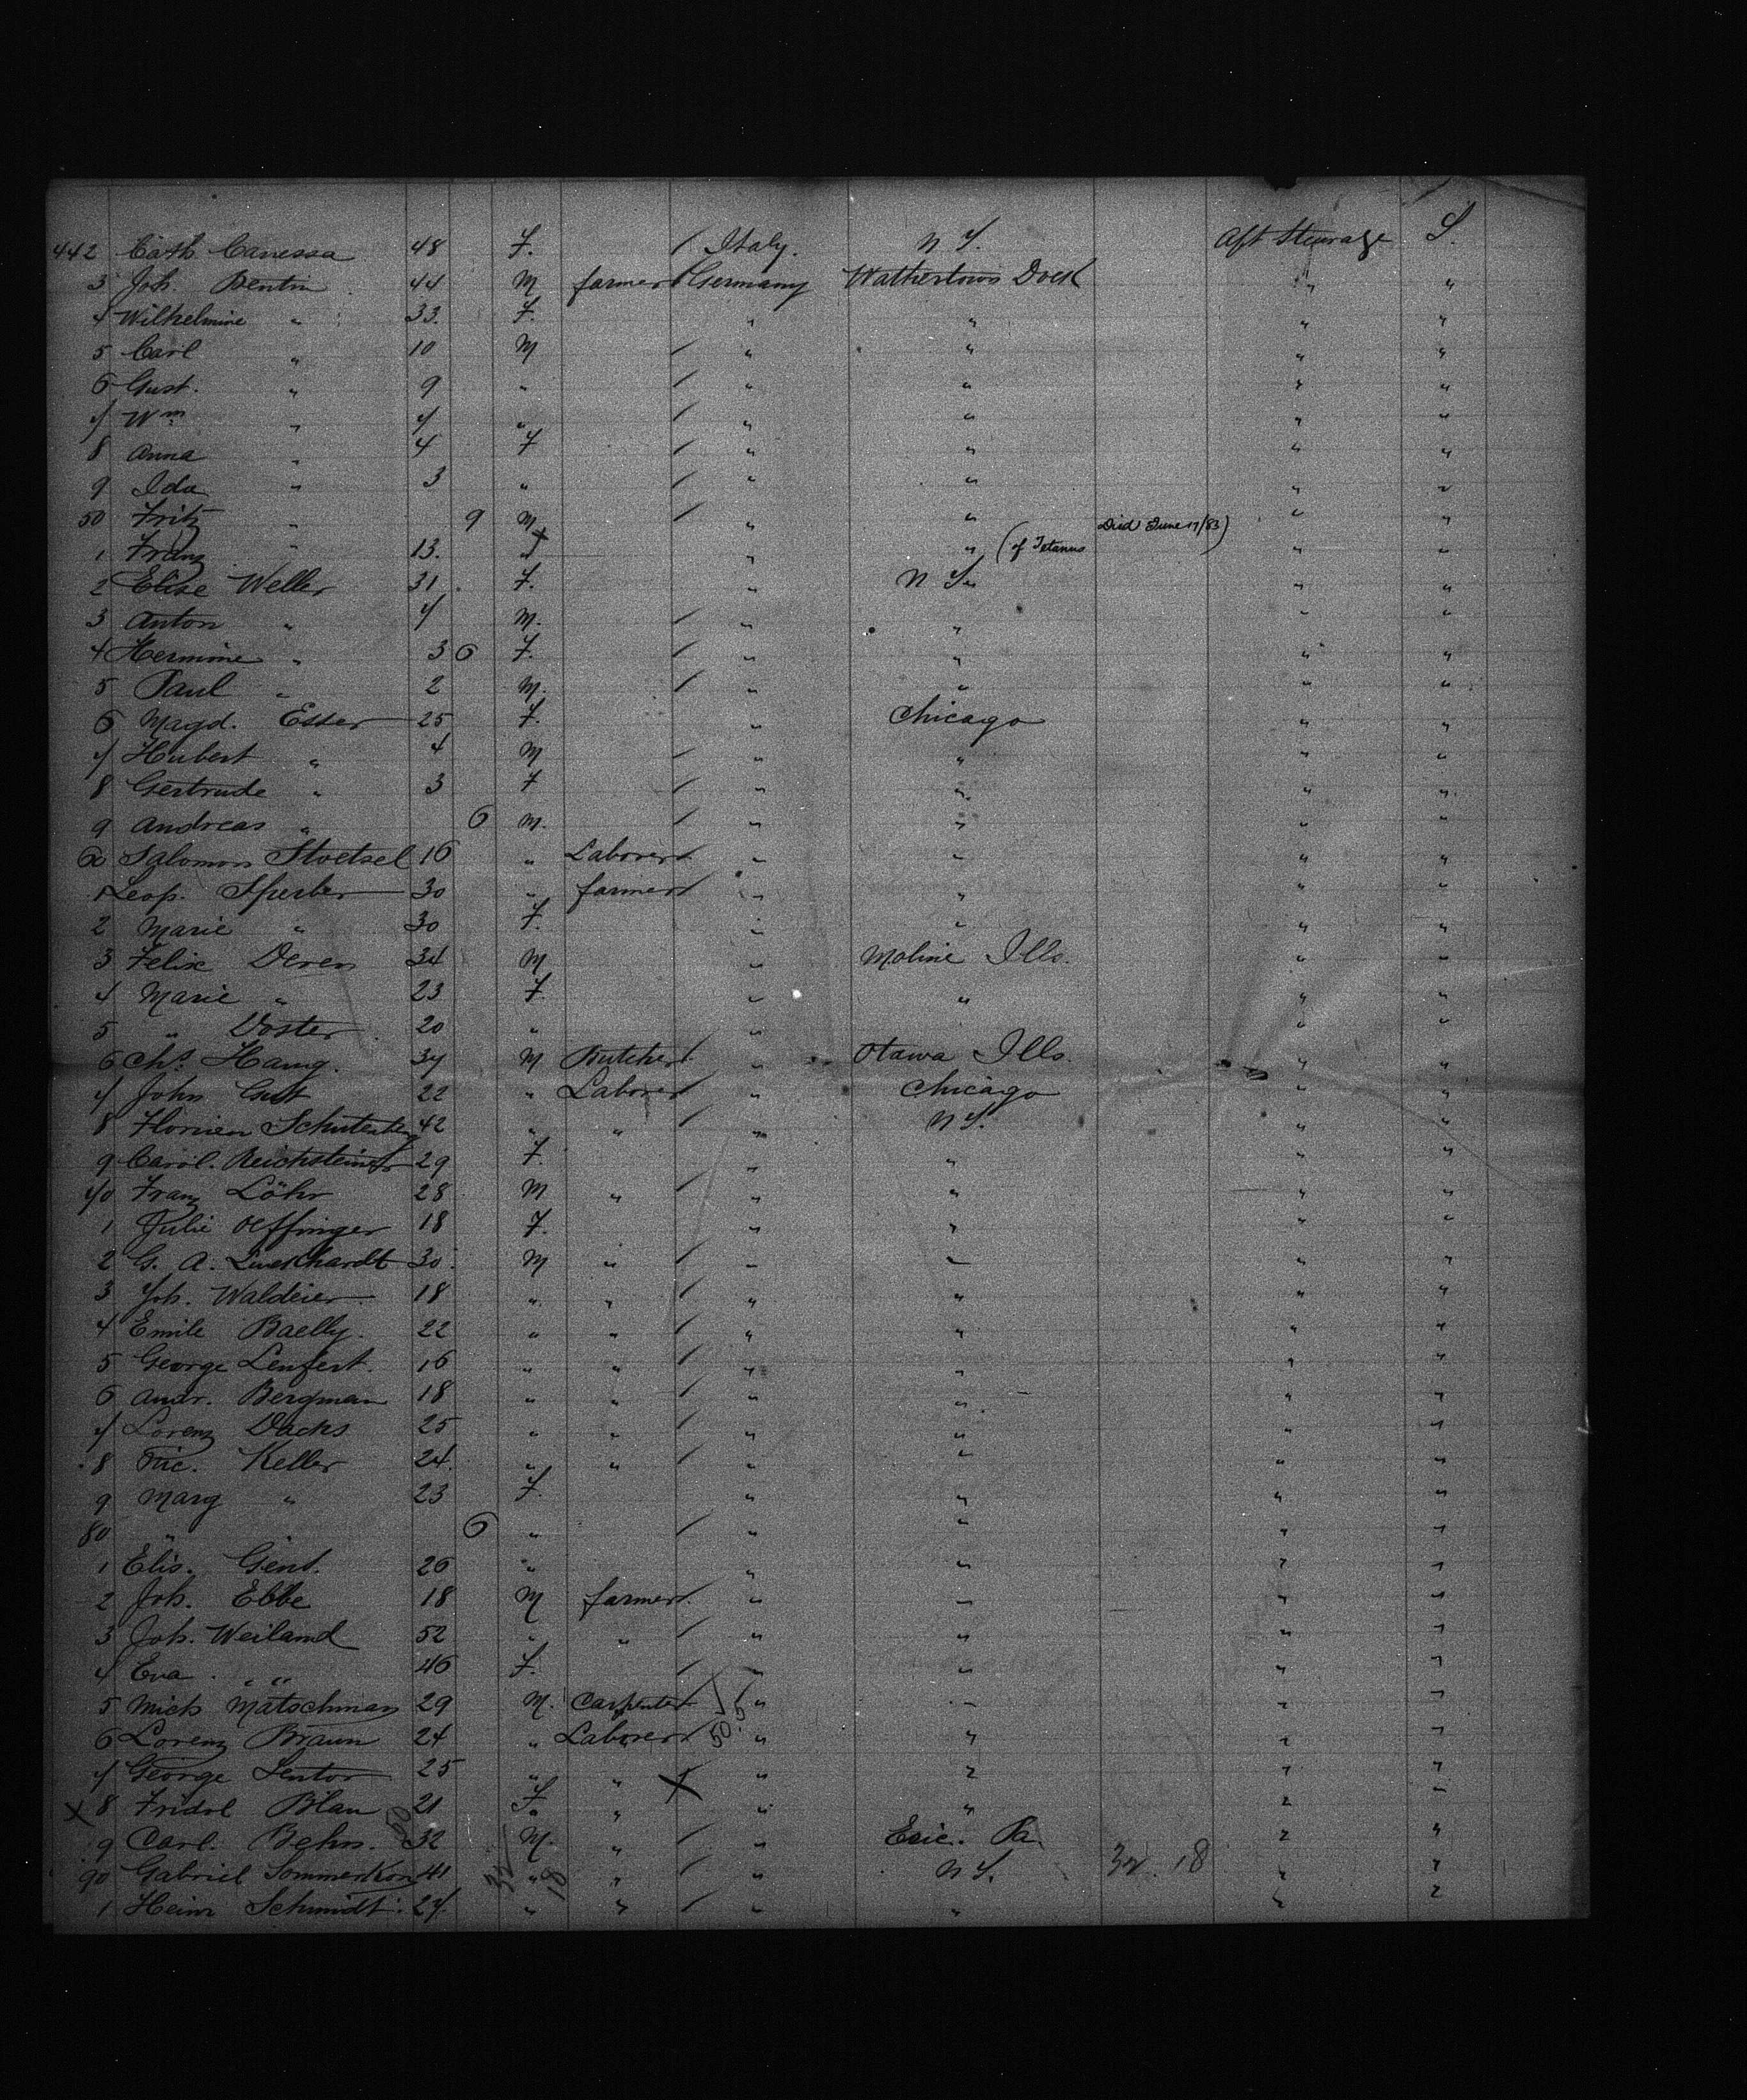 442 Cath. Canessa 48 F. / Italy. N Y. Aft Steerage S.
3 Joh. Bentin 44 M farmer / Germany Wathertown Dock " "
4 Wilhelmine " 33. F. " " " "
5 Carl " 10 M / " " " "
6 Gust. " 9 " / " " " "
7 Wm " 7 " / " " " "
8 Anna " 4 F / " " " "
9 Ida " 3 " / " " " "
50 Fritz " 9 M / " " " "
Died June 17/83)
1 Franz " 13. " " (of Tetanus " "
2 Elise Weller 31. F. " N Y. " "
3 Anton " 7 M. / " " " "
4 Hermine " 3 6 F. / " " " "
5 Paul " 2 M. / " " " "
6 Magd. Esser 25 F. " Chicago " "
7 Hubert " 4 M / " " " "
8 Gertrude " 3 F / " " " "
9 Andreas " 6 M. / " " " "
60 Salomon Stoetsel 16 " Laborer / " " " "
1 Leop. Sperber 30 " farmer / " " " "
2 Marie " 30 F. " " " "
3 Felix Deren 34 M " Moline Ills. " "
4 Marie " 23 F. " " " "
5 " Voster 20 " " " "
6 Chs. Haug. 37 M Butcher / " Otawa Ills. " "
7 John Gust 22 " Laborer / " Chicago " "
8 Florien 42 " " / " N Y. " "
9 Carol. Reichsteiner 29 F. " " " "
70 Franz Löhr 28 M " / " " " "
1 Julie Oeffinger 18 F. " " " "
2 G. A. 30 M " / " " " "
3 Joh. Waldeier 18 " " / " " " "
4 Emile Baelly. 22 " " / " " " "
5 George Lenfert. 16 " " / " " " "
6 Andr. Bergman 18 " " / " " " "
7 Lorenz Dachs 25 " " / " " " "
8 Nic. Keller 24. " " / " " " "
9 Marg " 23 F. " " " "
80 " 6 " / " " " "
1 Elis. Gent. 26 " " " " "
2 Joh. Ebbe 18 M farmer / " " " "
3 Joh. Weiland 52 " " / " " " "
4 Eva " 46 F. / " " " "
5 Mich Matschman 29 M. Carpenter / " " " "
6 Lorenz Braun 24 " Laborer / 50.5 " " " "
7 George Sentor 25 " " X " " " "
X 8 Fridol Blau 21 F " " " " "
9 Carl. Behn. 32 M. " / " Erie. Pa. " "
90 Gabriel Sommerkorn 41 " " / " N Y. 32. 18 " "
32 18
1 Heinr Schmidt. 27. " " / " " " "